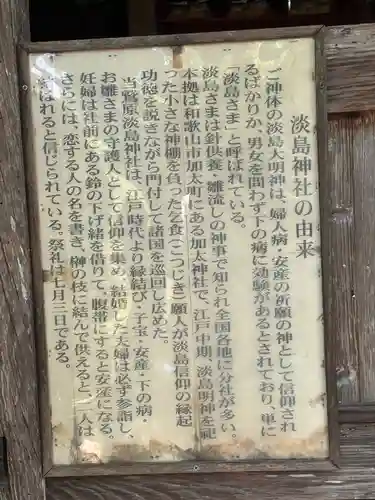 淡島神社の由来
ご神体の淡島大明神は、婦人病・安産の祈願の神として信仰され
るばかりか、男女を問わず下の病に効験があるとされており、単に
「淡島さま」と呼ばれている。
淡島さまは針供養・雛流しの神事で知られ全国各地に分社が多い。
本拠は和歌山市加太町にある加太神社で、江戸中期、淡島明神を祀
った小さな神棚を負った乞食(こつじき)願人が淡島信仰の縁起
功徳を説きながら門付して諸国を巡回し広めた。
当菅原淡島神社は、江戸時代より縁結び・子宝・安産・下の病・
お雛さまの守護人として信仰を集め、結婚した夫婦は必ず参詣し、
妊婦は社前にある鈴の下げ緒を借りて、腹帯にすると安産になる。
さらには、恋する人の名を書き、榊の枝に結んで供えると、二人は
結ばれると信じられている。祭礼は七月三日である。